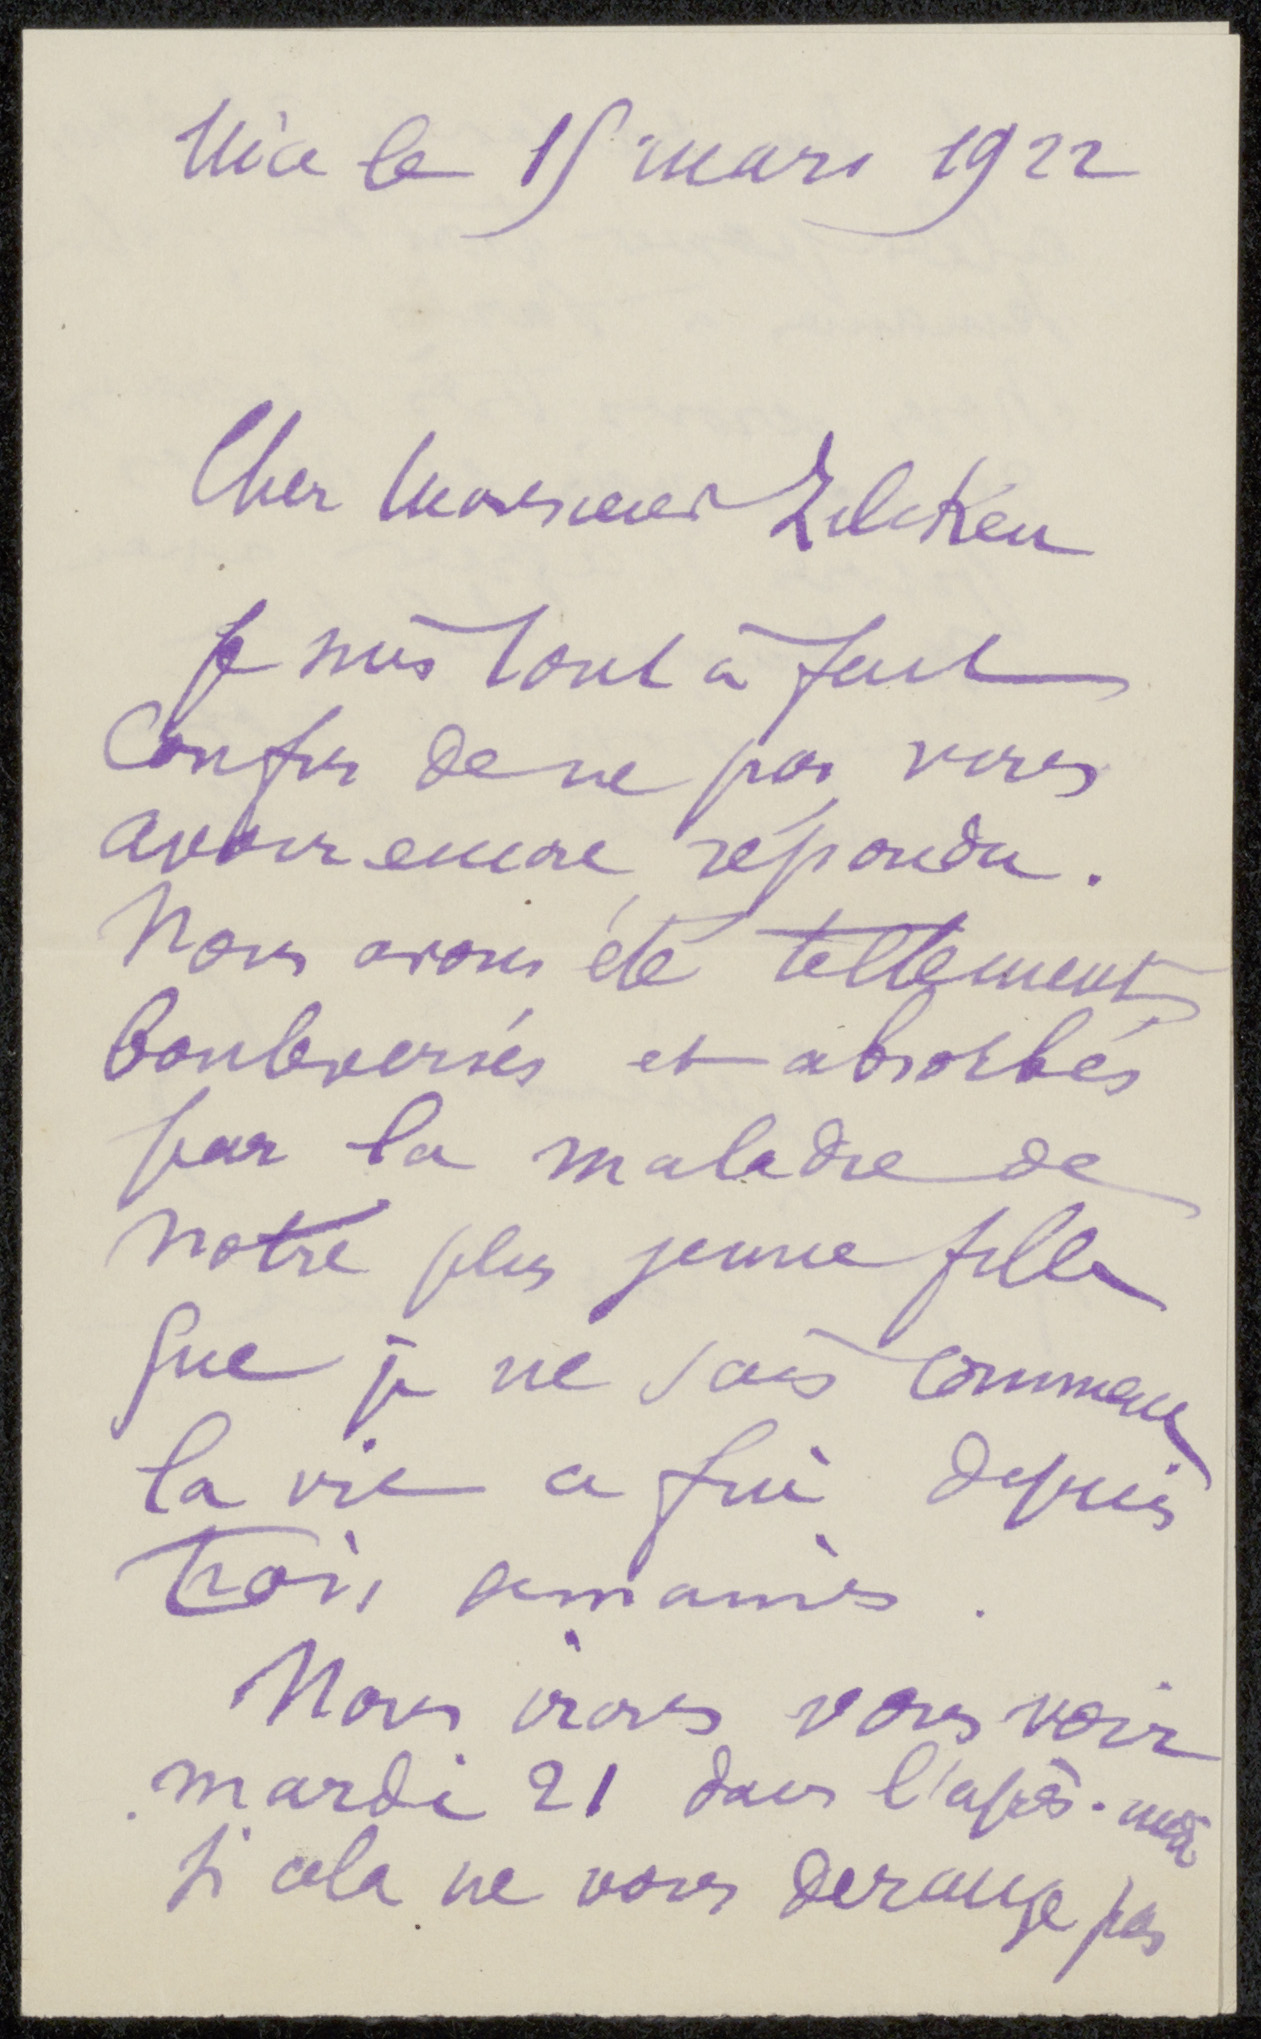 Nice le 15 mars 1922
Cher Monsieur Zilcken
Je suis tout à fait
Confus de ne pas vous
avoir encore répondu.
Nous avons été tellement
bouleversés et absorbés
par la maladie de
notre plus jeune fille
que je ne sais comment
la vie a fui depuis
trois semaines.
Nous irons vous voir
mardi 21 dans l'après-midi
si cela ne vous derange pas